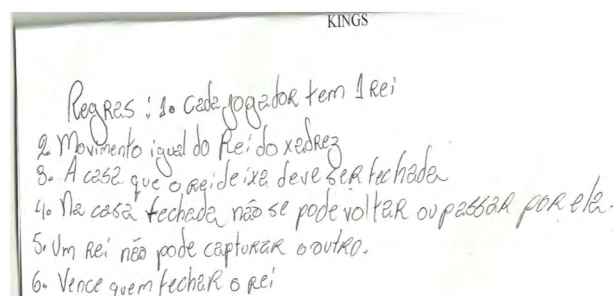 KINGS
Regras: 1. Cada jogador tem 1 Rei
2. Movimento igual do Rei do xedrez
3. A casa que o rei deixa deve ser fechada
4. Na casa fechada não se pode voltar ou passar por ela.
5. Um Rei não pode capturar o outro.
6. Vence quem fechar o rei